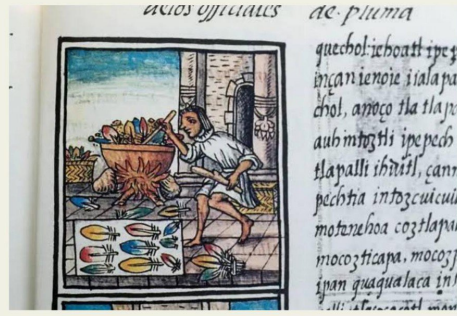 delos officiales de. pluma
quechol: iehoatl ipep
inçan ienoie
chol, anoço tla tlapa
auh in toztli ipepech
tlapalli ihuitl, çann
pechtia in tozcuicuil
motenehoa coztlapal
mocozticapa, mocozp
ipan quaqualaca in